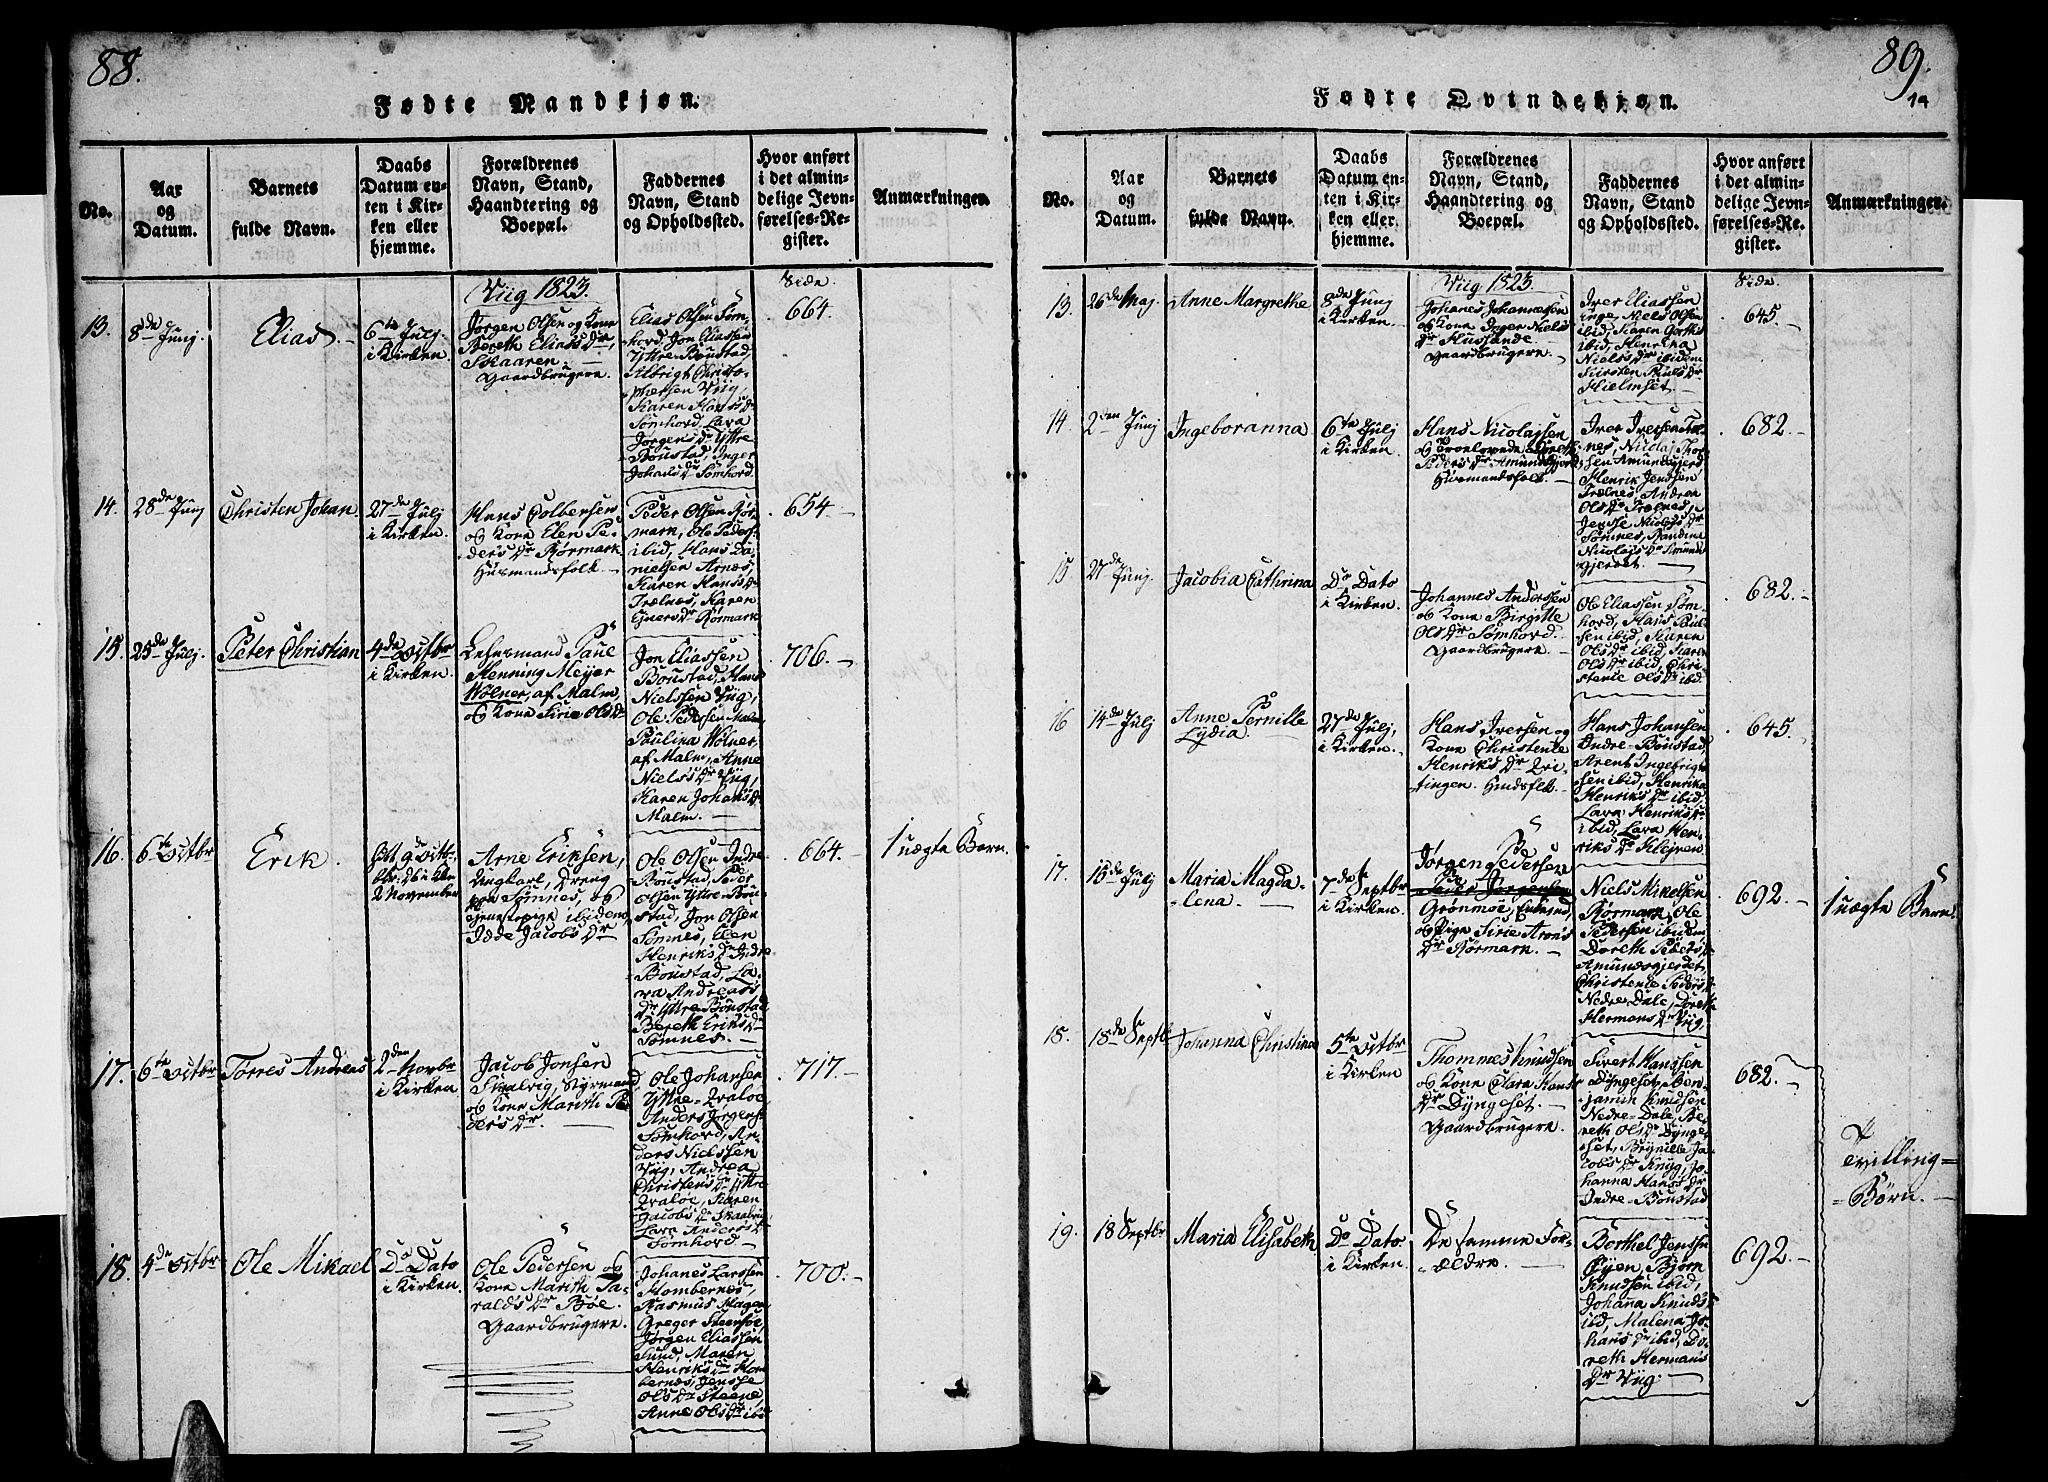 88.
Fødte Mandkjøn.
No.
Aar
og
Datum.
Barnets
fulde Navn.
Daabs
Datum en-
ten i Kir-
ken eller
hjemme.
Forældrenes
Navn, Stand,
Haandtering og
Boepæl.
Faddernes
Navn, Stand
og Opholdssted.
Hvor anført
i det almin-
delige Jevn-
førelses-Re-
gister.
Anmærkninger.
Viig 1823.
Side
13.
8de Junj.
Elias.
6te Julj.
i Kirken.
Jørgen Olsen og Kone
Bereth Elias Dr,
Skaaren.
Gaardbrugere.
Elias Olsen Søm-
hord, Jon Eliassen
Yttre-Boustad,
Albrigt Christo-
phersen Viig,
Karen Hans Dr
Sømhord, Lava
Jørgens Dr Yttre
Boustad, Inger
Johans Dr Sømhord.
664.
14.
28de Junj
Christen Johan.
27de Julj
i Kirken.
Hans Colbensen
og Kone Elen Pe-
ders Dr Rørmark
Huusmandsfolk.
Peder Olsen Rør-
mark, Ole Peders.
ibid, Hans Da-
nielsen Arnæs,
Karen Hans Dr
Trælnæs, Karen
Ejners Dr Rørmark
654
15.
25de Julj.
Peter Christian
4de Octbr
i Kirken.
Lehnsmand Paul
Henning Meyer
Wølner, af Malm,
og Kone Sirie Ols Dr
Jon Eliassen
Boustad, Hans
Nielssen Viig,
Ole Pedersen Malm,
Paulina Wølner,
af Malm, Anne
Niels Dr Viig,
Karen Johans Dr
Malm.
706.
16.
6te Octbr
Erik.
2 November
Arne Eriksen,
Ungkarl, Dreng
paa Sømnes, og
ibidem,
Idde Jacobs Dr
Ole Olsen Indre
Boustad, Peder
Olsen Yttre Bou-
stad, Jon Olsen
Sømnes, Elen
Henriks Dr Indre
Boustad, La-
va Andreas
Dr Yttre Boustad
Bereth Eriks Dr
Sømnes.
664.
1 uægte Barn.
17.
6te Octbr
Torres Andreas
2den Novbr
i Kirken
Jacob Jonsen
Skalvig, Styrmand
og Kone Marith Pe-
ders Dr.
Ole Johansen
Yttre-Qvaløe
Anders Jørgens.
Sømhord, An-
ders Nielssen
Viig, Andrea
Christens Dr Yttre
Qvaløe, Karen
Jacobs Dr Skaalvig
Lava Anders Dr
Sømhord.
717.
18.
4de Octbr
Ole Mikael
Do Dato
i Kirken.
Ole Pedersen og
Kone Marith Ta-
ralds Dr Bøe.
Gaardbrugere.
Johanes Larssen
Hombernes,
Rasmus Mager
Greger Steensøe
Jørgen Eliassen
Sund, Maren
Henriks Dr Hom
bernæs, Jensse
Ols Dr Steene
Anne Ols Dr ibid
700.
89.
14
Fødte Qvindekjøn.
No.
Aar
og
Datum.
Barnets
fulde Navn.
Daabs
Datum en-
ten i Kir-
ken eller
hjemme.
Forældrenes
Navn, Stand,
Haandtering og
Boepæl.
Faddernes
Navn, Stand
og Opholdssted.
Hvor anført
i det almin-
delige Jevn-
førelses-Re-
gister.
Anmærkninger.
Viig 1823.
Side.
13.
26de Maj.
Anne Margrethe
8de Junj
i Kirken.
Johanes Johannessen
og Kone Inger Niels
Dr Huslande
Gaardbrugere.
Iver Eliassen
Niels Olsen
ibid, Karen
ibid, Henrina
Niels Dr ibidem
Kirsten Pouls Dr
Hielmset.
645.
14.
2den Junj
Ingeboranna
6te Julj
i Kirken.
Hans Nicolajsen
og Trolovede Bereth
Peders Dr Amundsgjerd
Huusmandsfolk.
Iver Iversen Træl-
nes, Nicolaj Thor-
sen Amundsgjerd
Henrik Jenssen
Trælnes, Andrea
Ols Dr Trælnes,
Jensse Nicolajs Dr
Sømnes, Randina
Nicolajs Dr Amunds-
gjerdet.
682.
15
27de Junj.
Jacobia Cathrina
Do Dato
i Kirken.
Johannes Anderssen
og Kone Birgitte
Ols Dr Sømhord.
Gaardbrugere.
Ole Eliassen Søm-
hord, Hans Poul-
sen ibid, Karen
Ols Dr ibid, Karen
Ols Dr ibid, Chri-
stenie Ols Dr ibid
682.
16
14de Julj
Anne Pernille
Lydia.
27de Julj,
i Kirken.
Hans Iversen og
Kone Christenie
Henriks Dr Qvi-
tingen. Huusfolk.
Hans Johansen
Indre-Boustad,
Arent Ingebrigt-
sen ibid, Henrika
Henriks Dr ibid
Lava Henriks Dr
ibid, Lava Hen-
riks Dr Klejven
645.
17.
18de Julj
Maria Magda-
lena.
7de Septbr
i Kirken.
Jørgen Pedersen
Peder Jørgensen
Grønmoe, Enkemd,
og Pige Sirie Arons
Dr Rørmark.
Niels Mikelsen
Rørmark, Ole
Pedersen ibidem
Doreth Peders Dr
Amundsgjerdet,
Christenie Peders Dr
Nedre Dale, Doreth
Hermans Dr Viig,
692.
1 uægte Barn
18.
18de Septb
Johanna Christina
5te Octbr
i Kirken
Thommes Knudsen
og Kone Clara Hans
Dr Dyngeset.
Gaardbrugere.
Sivert Hanssen
Dyngeset, Ben-
jamin Knudsen
Nedre-Dale, Be-
reth Ols Dr Dynge-
set, Brynille Ja-
cobs Dr Knyg, Jo-
hanna Hans Dr
Indre-Boustad
682.
Tvilling-
Børn.
19.
18 Septbr
Maria Elisabeth
Do Dato
i Kirken.
De samme For-
ældre.
Berthel Jenssen
Øyen, Bjørn
Knudsen ibid,
Johana Knuds Dr
ibid, Malena Jo-
hans Dr ibid, Do-
reth Hermans
Dr Viig.
692.